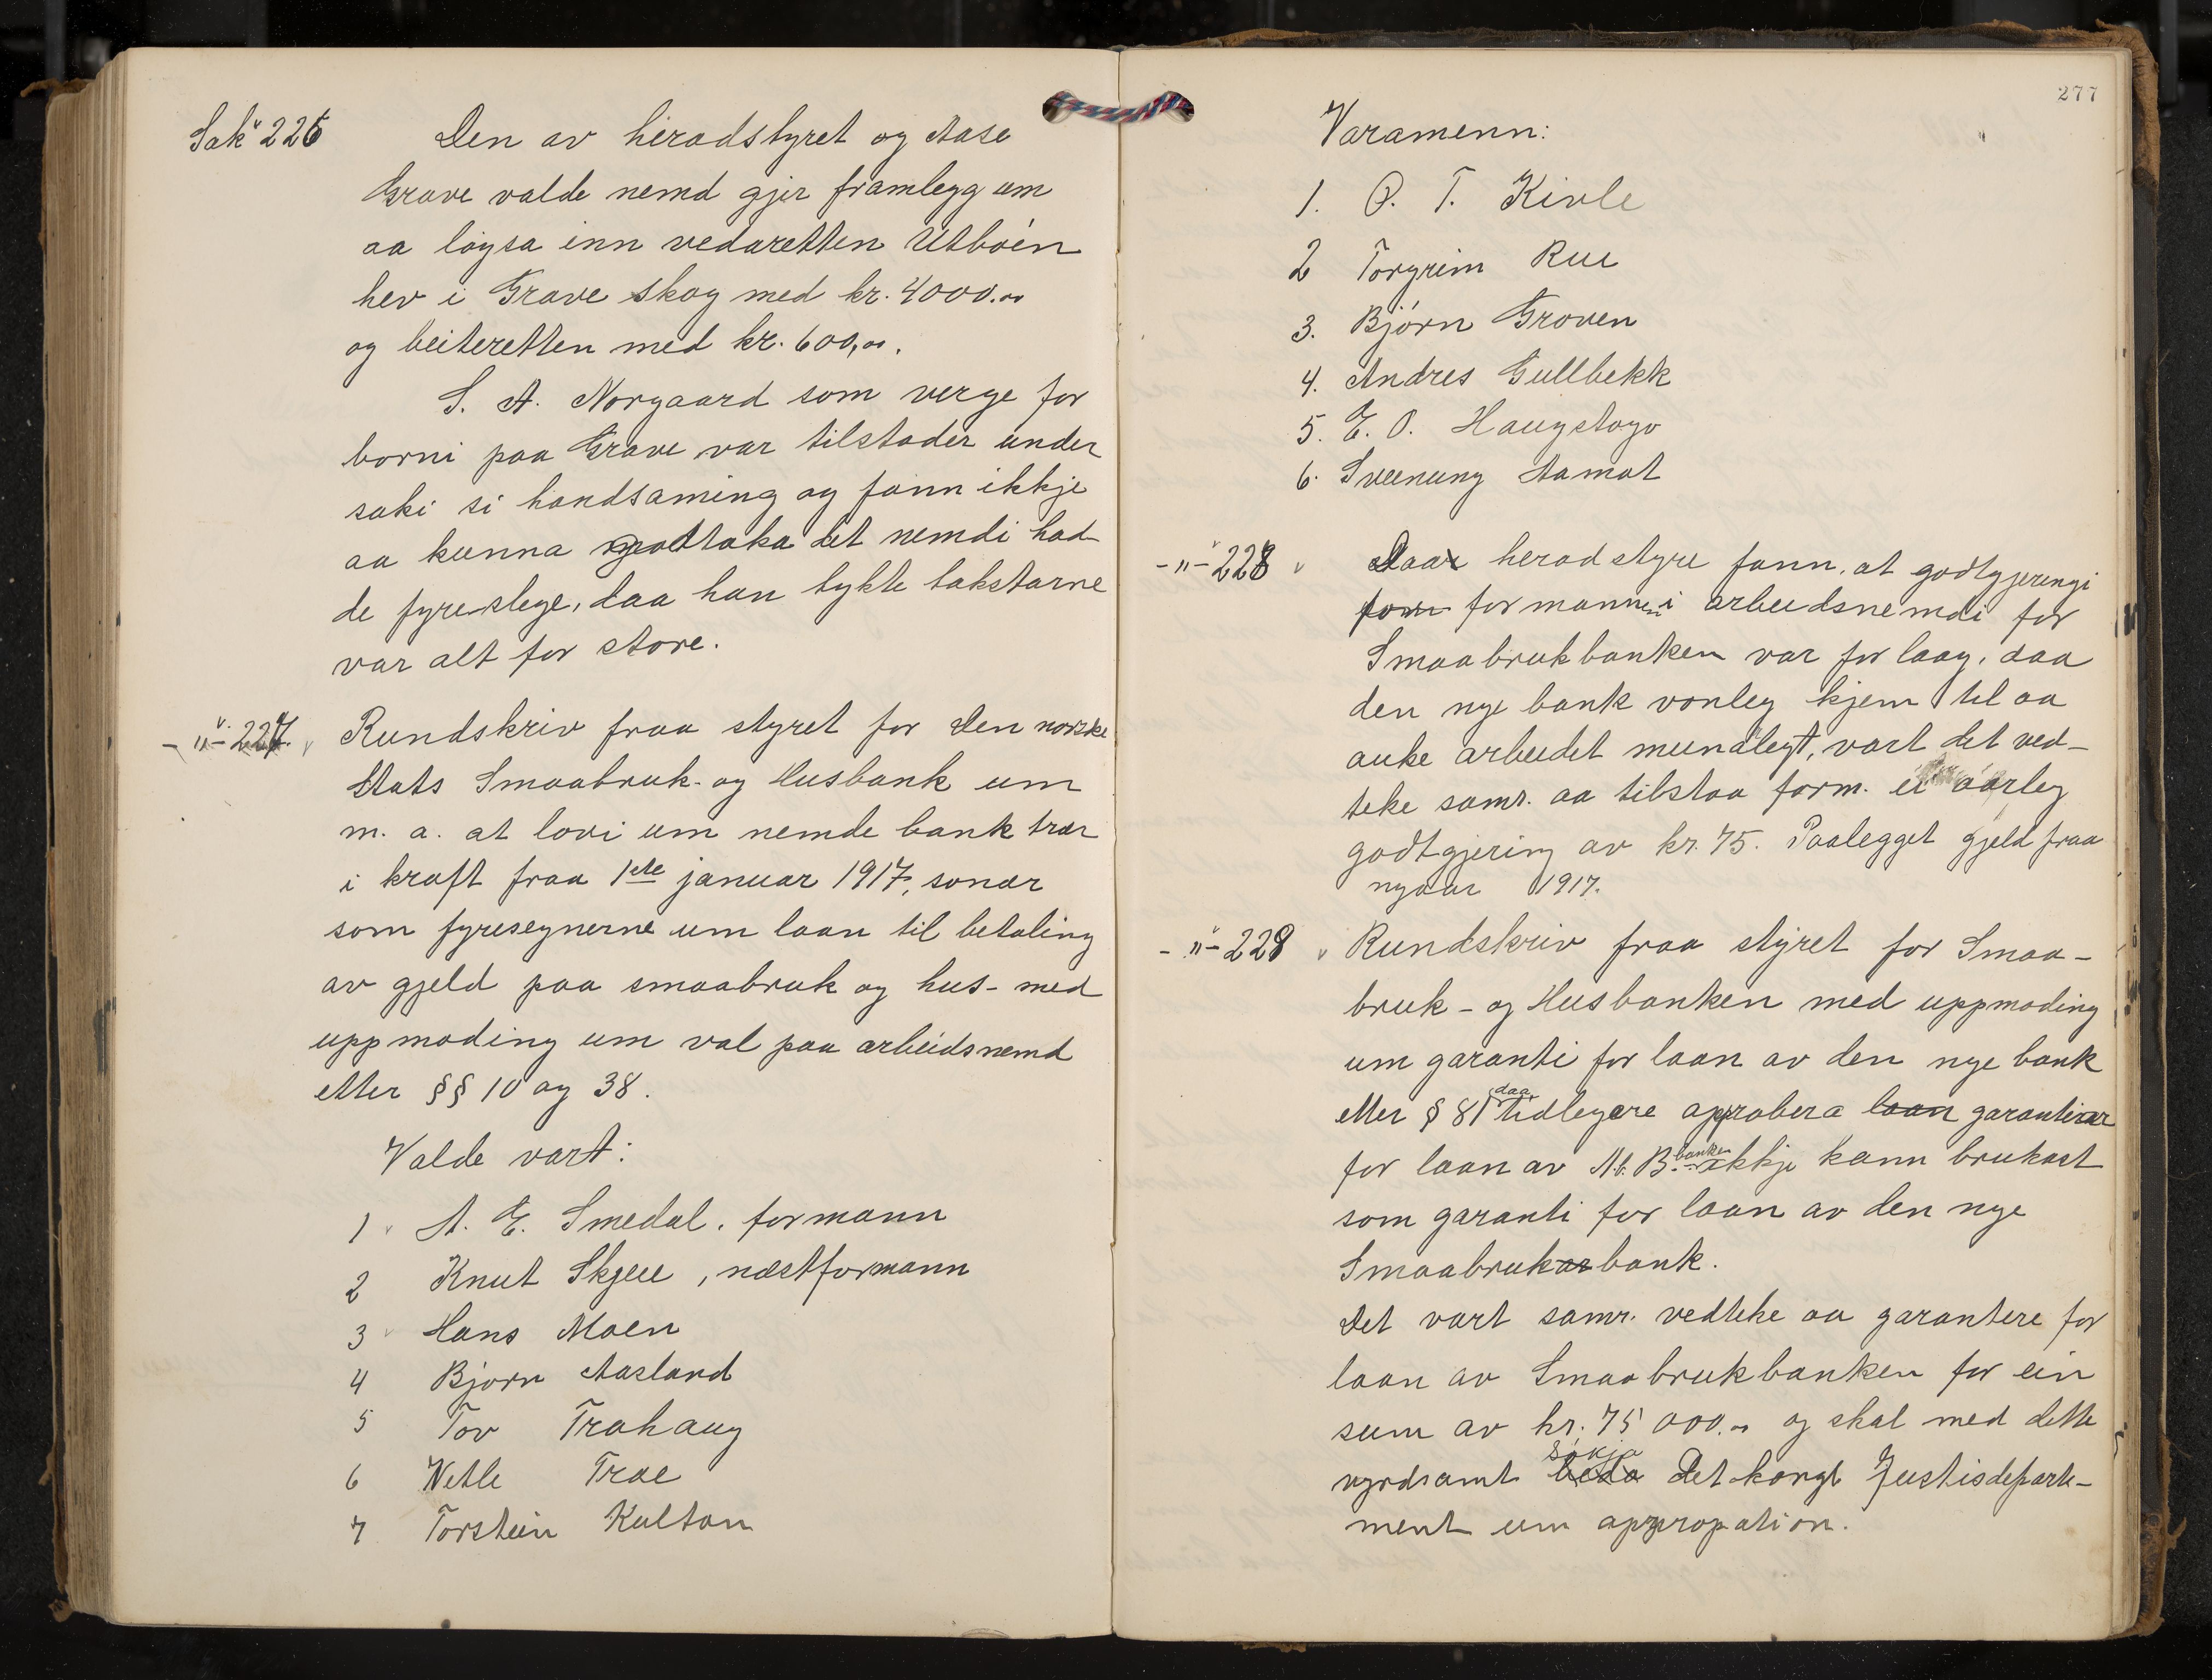 Sak 226 Den av heradstyret og Aase
Grave valde nemd gjer framlegg um
aa løysa inn vedaretten Utbøen
hev i Grave skog med kr. 4000.00
og beiteretten med kr. 600,00.
S. A. Norgaard som verge for
borni paa Grave var tilstader under
saki si handsaming og fann ikkje
aa kunna godtaka det nemdi had-
de fyreslege, daa han tykte takstarne
var alt for store.
-"- 227. Rundskriv fraa styret for Den norske
Stats Smaabruk- og Husbank um
m. a. at lovi um nemde bank trær
i kraft fraa 1ste januar 1917, sonær
som fyresegnerne um laan til betaling
av gjeld paa smaabruk og hus- med
uppmoding um val paa arbeidsnemd
etter §§ 10 og 38.
Valde vart:
1 A. E. Smedal, formann
2 Knut Skjeie, næstformann
3 Hans Moen
4 Bjørn Aasland
5 Tov Trahaug
6 Vetle Træ
7 Torstein Kultan
277
Varamenn:
1. O. T. Kivle
2 Torgrim Rue
3. Bjørn Groven
4. Andres Gullbekk
5. E. O. Haugstogo
6. Sveinung Aamot
-"- 228 Daa herad styre fann, at godtgjeringi
formannen i arbeidsnemdi for
Smaabrukbanken var for laag, daa
den nye bank vonleg kjem til aa
auke arbeidet munalegt, vart det ved-
teke samr. aa tilstaa form. ei aarleg
godtgjering av kr. 75. Paalegget gjeld fraa
nyaar 1917.
-"- 229 Rundskriv fraa styret for Smaa-
bruk- og Husbanken med uppmoding
um garanti for laan av den nye bank
etter § 81 daa tidlegare approbera laan garantiar
for laan av A. b. B. banken ikkje kann brukast
som garanti for laan av den nye
Smaabrukarbank.
Det vart samr. vedteke aa garantere for
laan av Smaabrukbanken for ein
sum av kr. 75 000.00 og skal med dette
vyrdsamt beda søkja Det kongl Justisdeparte-
ment um appropation.